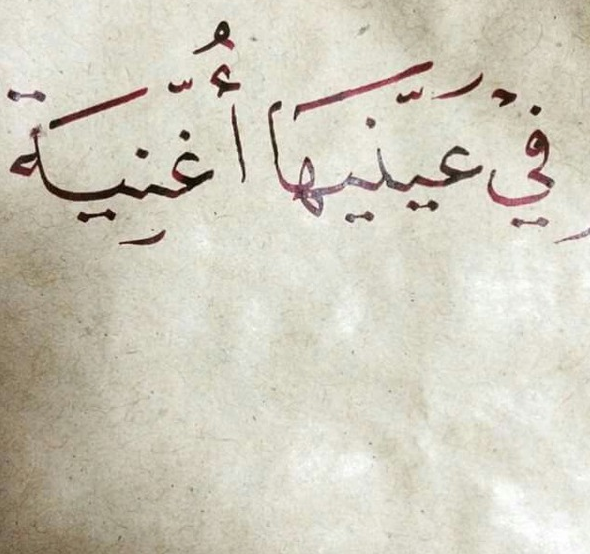 في عَيّنيها أُغّنِية